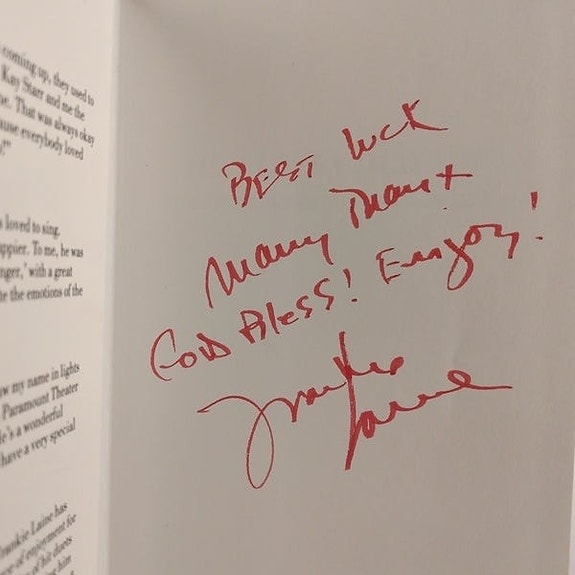 coming up, they used to
Kay Starr and me the
ne. That was always okay
ause everybody loved
!"
s loved to sing.
appier. To me, he was
nger,' with a great
te the emotions of the
w my name in lights
Paramount Theater
e's a wonderful
have a very special
rankie Laine has
of enjoyment for
of hit duets
him
Best luck
Many Thanx
God Bless! Enjoy!
Frankie
Laine